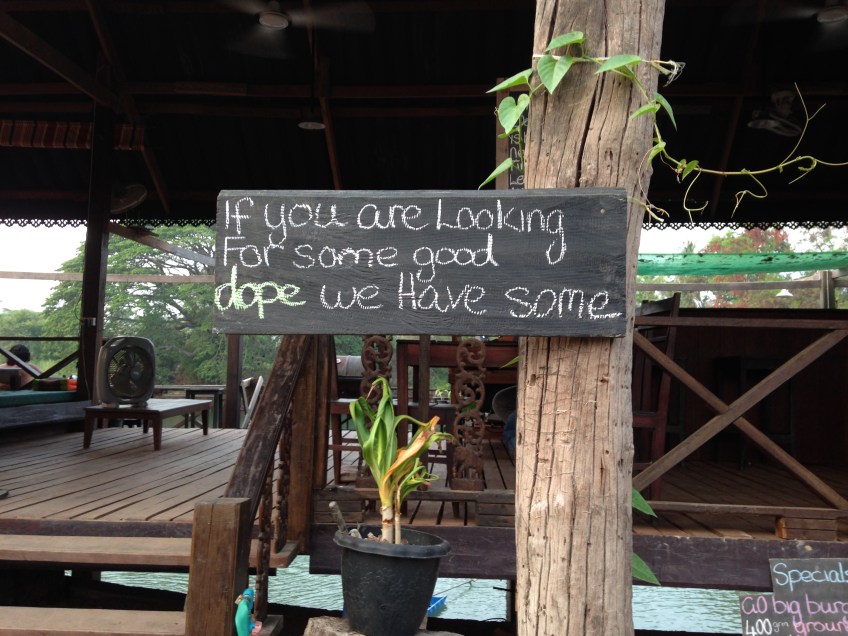 If you are Looking
For some good
dope we Have some
Specials
big
400 grm